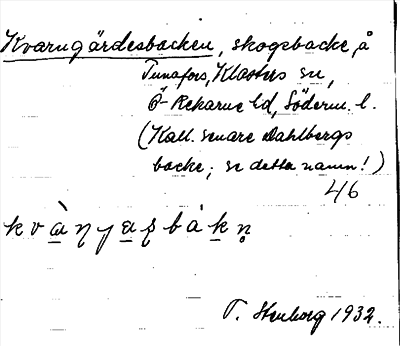 Kvarngärdesbacken, skogsbacke, å
Tunafors, Klosters sn,
Ö-Rekarne hd, Söderm. l.
(Kall. senare Dahlbergs
backe; se detta namn!)
46
T. Stenborg 1932.